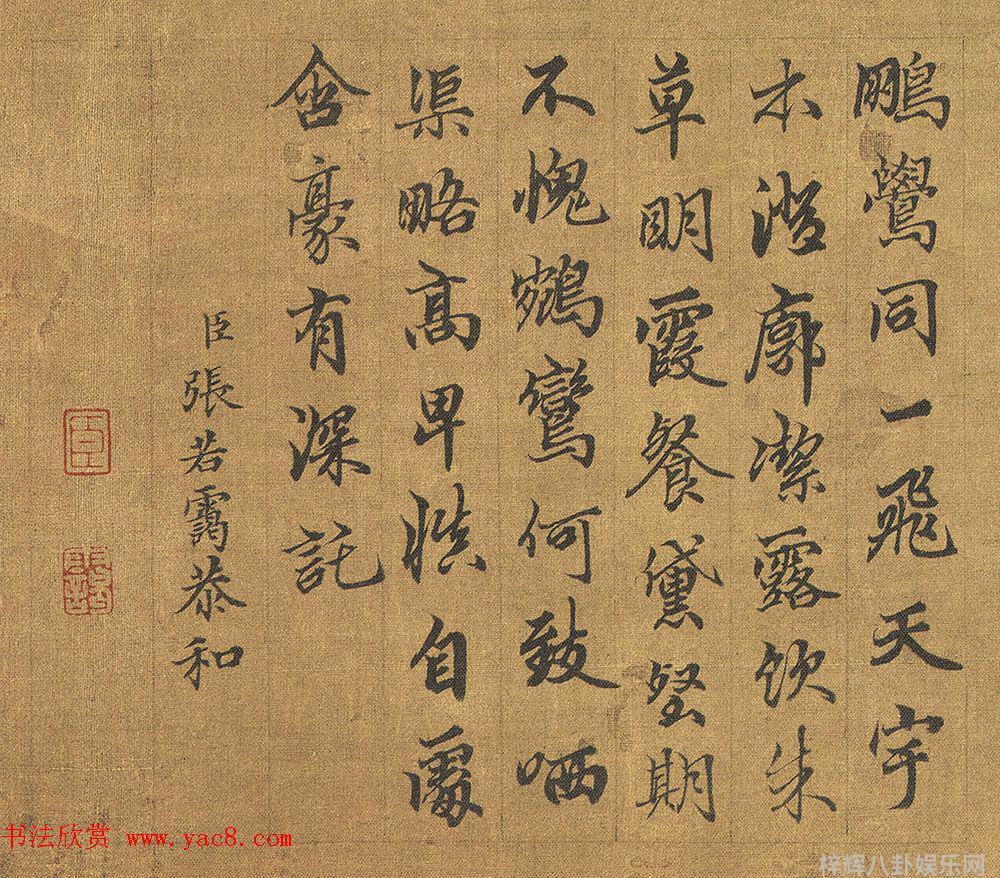 鵬鷽同一飛天宇
本澄廓潔露飲朱
草明霞餐黛壑期
不愧鵷鸞何致哂
渠略高卑慎自處
含豪有深託
臣張若靄恭和
书法欣赏 www.yac8.com
梓辉八卦娱乐网